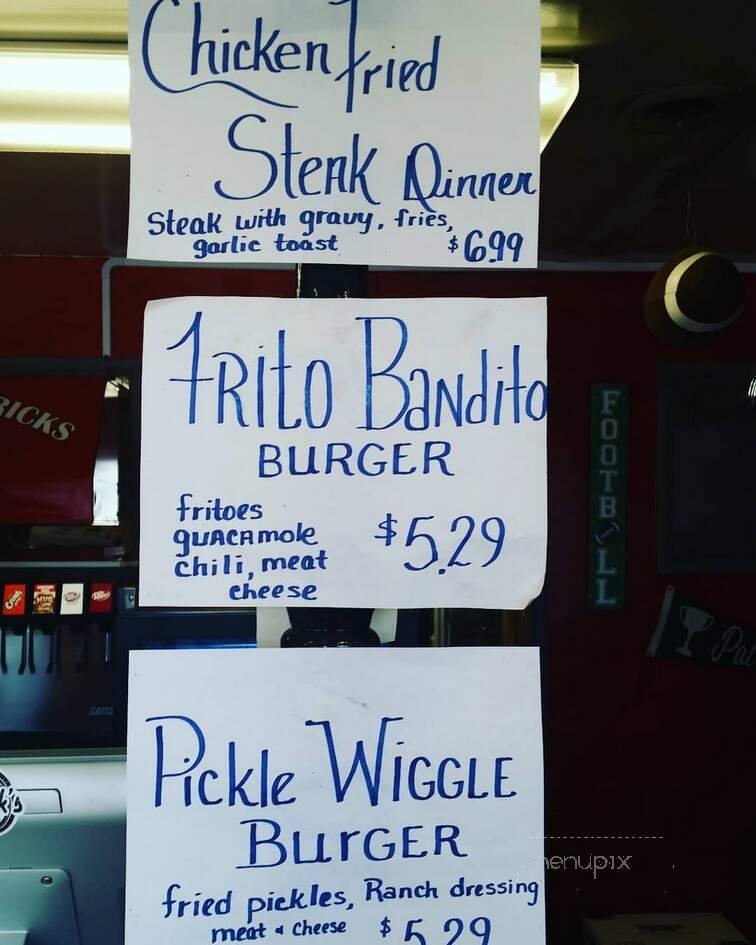 Chicken Fried
Steak Dinner
Steak with gravy, fries,
garlic toast $6.99
Frito Bandito
BURGER
fritoes
guacamole
chili, meat
cheese
$5.29
Pickle Wiggle
Burger
fried pickles, Ranch dressing
meat & cheese $5.29
RICKS
FOOTBALL
menupix